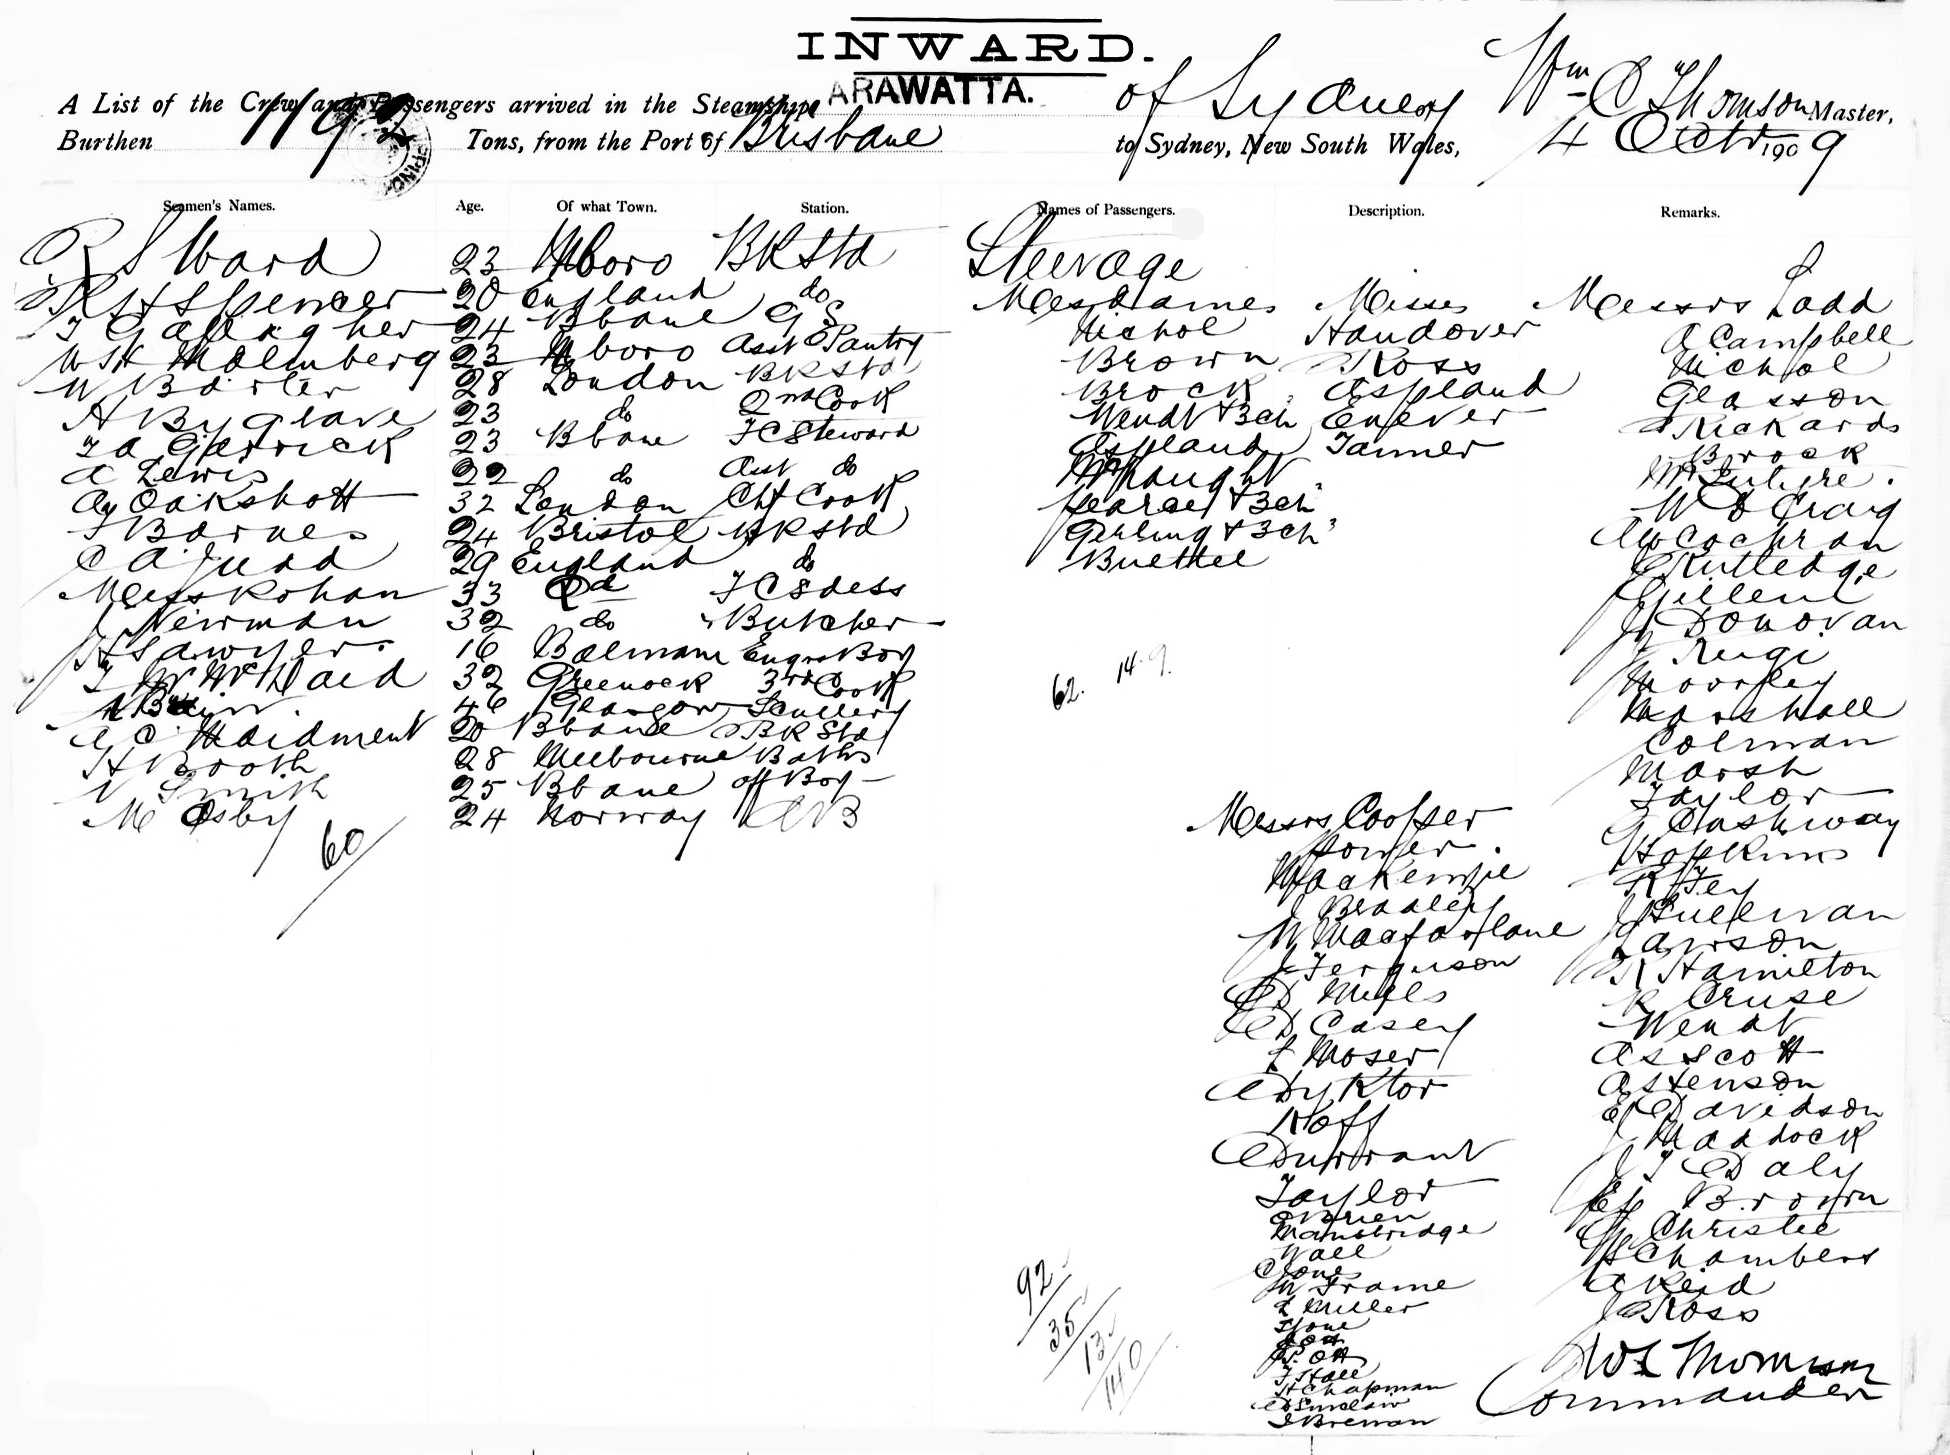 INWARD.
A List of the Crew and Passengers arrived in the Steamship ARAWATTA. of Sydney Wm C Thomson Master,
Burthen 1192 Tons, from the Port of Brisbane to Sydney, New South Wales, 4 Octr 1909
Seamen's Names. Age. Of what Town. Station.
R S Ward 23 Mboro BK Std
R H Spencer 20 England do
T Gallagher 24 Bbane G S
W H Malmberg 23 Mboro Asst Pantry
W Barter 28 London BK Std
A Byglave 23 do 2nd Cook
T A Garrick 23 Bbane F C Steward
A Lewis 22 do Asst do
Oakshott 32 London Chf Cook
T Barnes 24 Bristol BK Std
C A Judd 29 England do
Miss Kohan 33 Qd F C Sdess
J Newman 32 do Butcher
H Sawyer 16 Balmain Engrs Boy
J McDaid 32 Greenock 3rd Cook
46 Glasgow Scullery
A C Maidment 20 Bbane BK Std
H Booth 28 Melbourne Baths
N Smith 25 Bbane off Boy
M Osby 24 Norway AB
60
Names of Passengers. Description. Remarks.
Steerage
Mesdames Misses Messrs Ladd
Nichol Handover A Campbell
Brown Ross Nichol
Brock Aspland Glasson
Wendt & 3 ch Enever Rickards
Aspland Tanner Brock
McIntyre
Pearce & 3 ch W D Craig
Gerling & 3 ch W Cochran
Buethel Rutledge
Gillent
J Donovan
Reigi
Moorley
62. 14.9.
Marshall
Colman
Marsh
Taylor
Messrs Cooper G Cashway
Power Hopkins
MacKenzie R Fey
J Bradley J Sullivan
W Macfarlane Lawson
J Ferguson R Hamilton
D Mills R Cruse
D Casey Wendt
L Moser A S Scott
Dyktor A Stenson
Koff E Davidson
J Maddock
Durrant J T Daly
Taylor E J Brown
O'Brien G Christie
Mainbridge
Wall Chambers
C Jones A Reid
W Frame J Ross
L Miller
92
35
13
140
Ott
F Hall
H Chapman
D Sinclair
J Brennan
W C Thomson
Commander